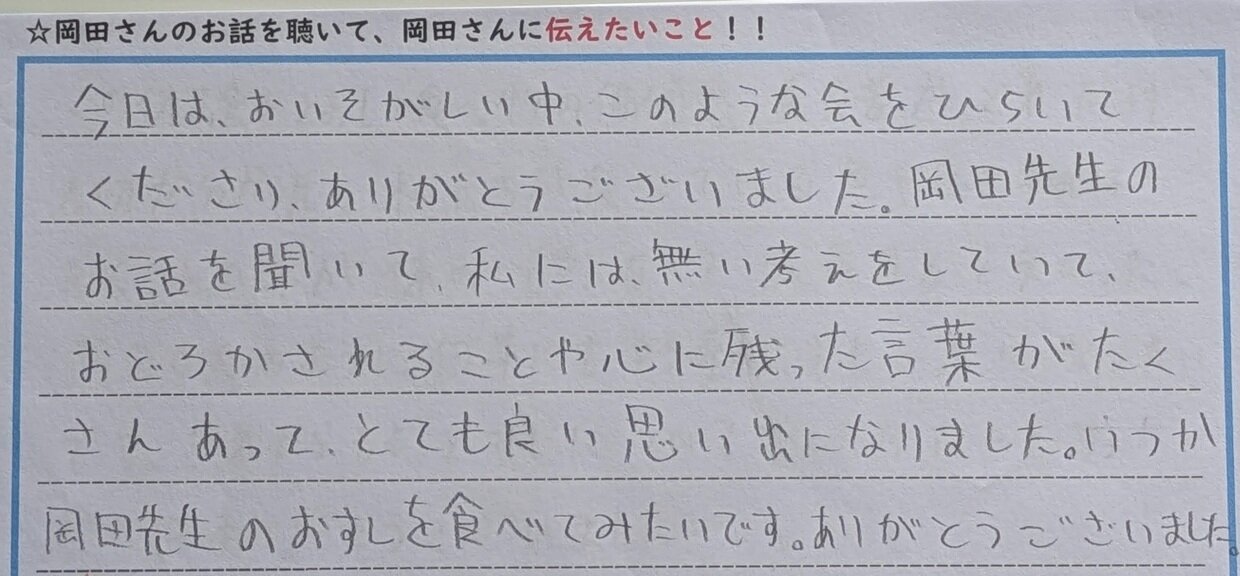 ☆岡田さんのお話を聴いて、岡田さんに伝えたいこと！！
今日は、おいそがしい中、このような会をひらいて
くださり、ありがとうございました。岡田先生の
お話を聞いて、私には、無い考えをしていて、
おどろかされることや心に残った言葉がたく
さんあって、とても良い思い出になりました。いつか
岡田先生のおすしを食べてみたいです。ありがとうございました。